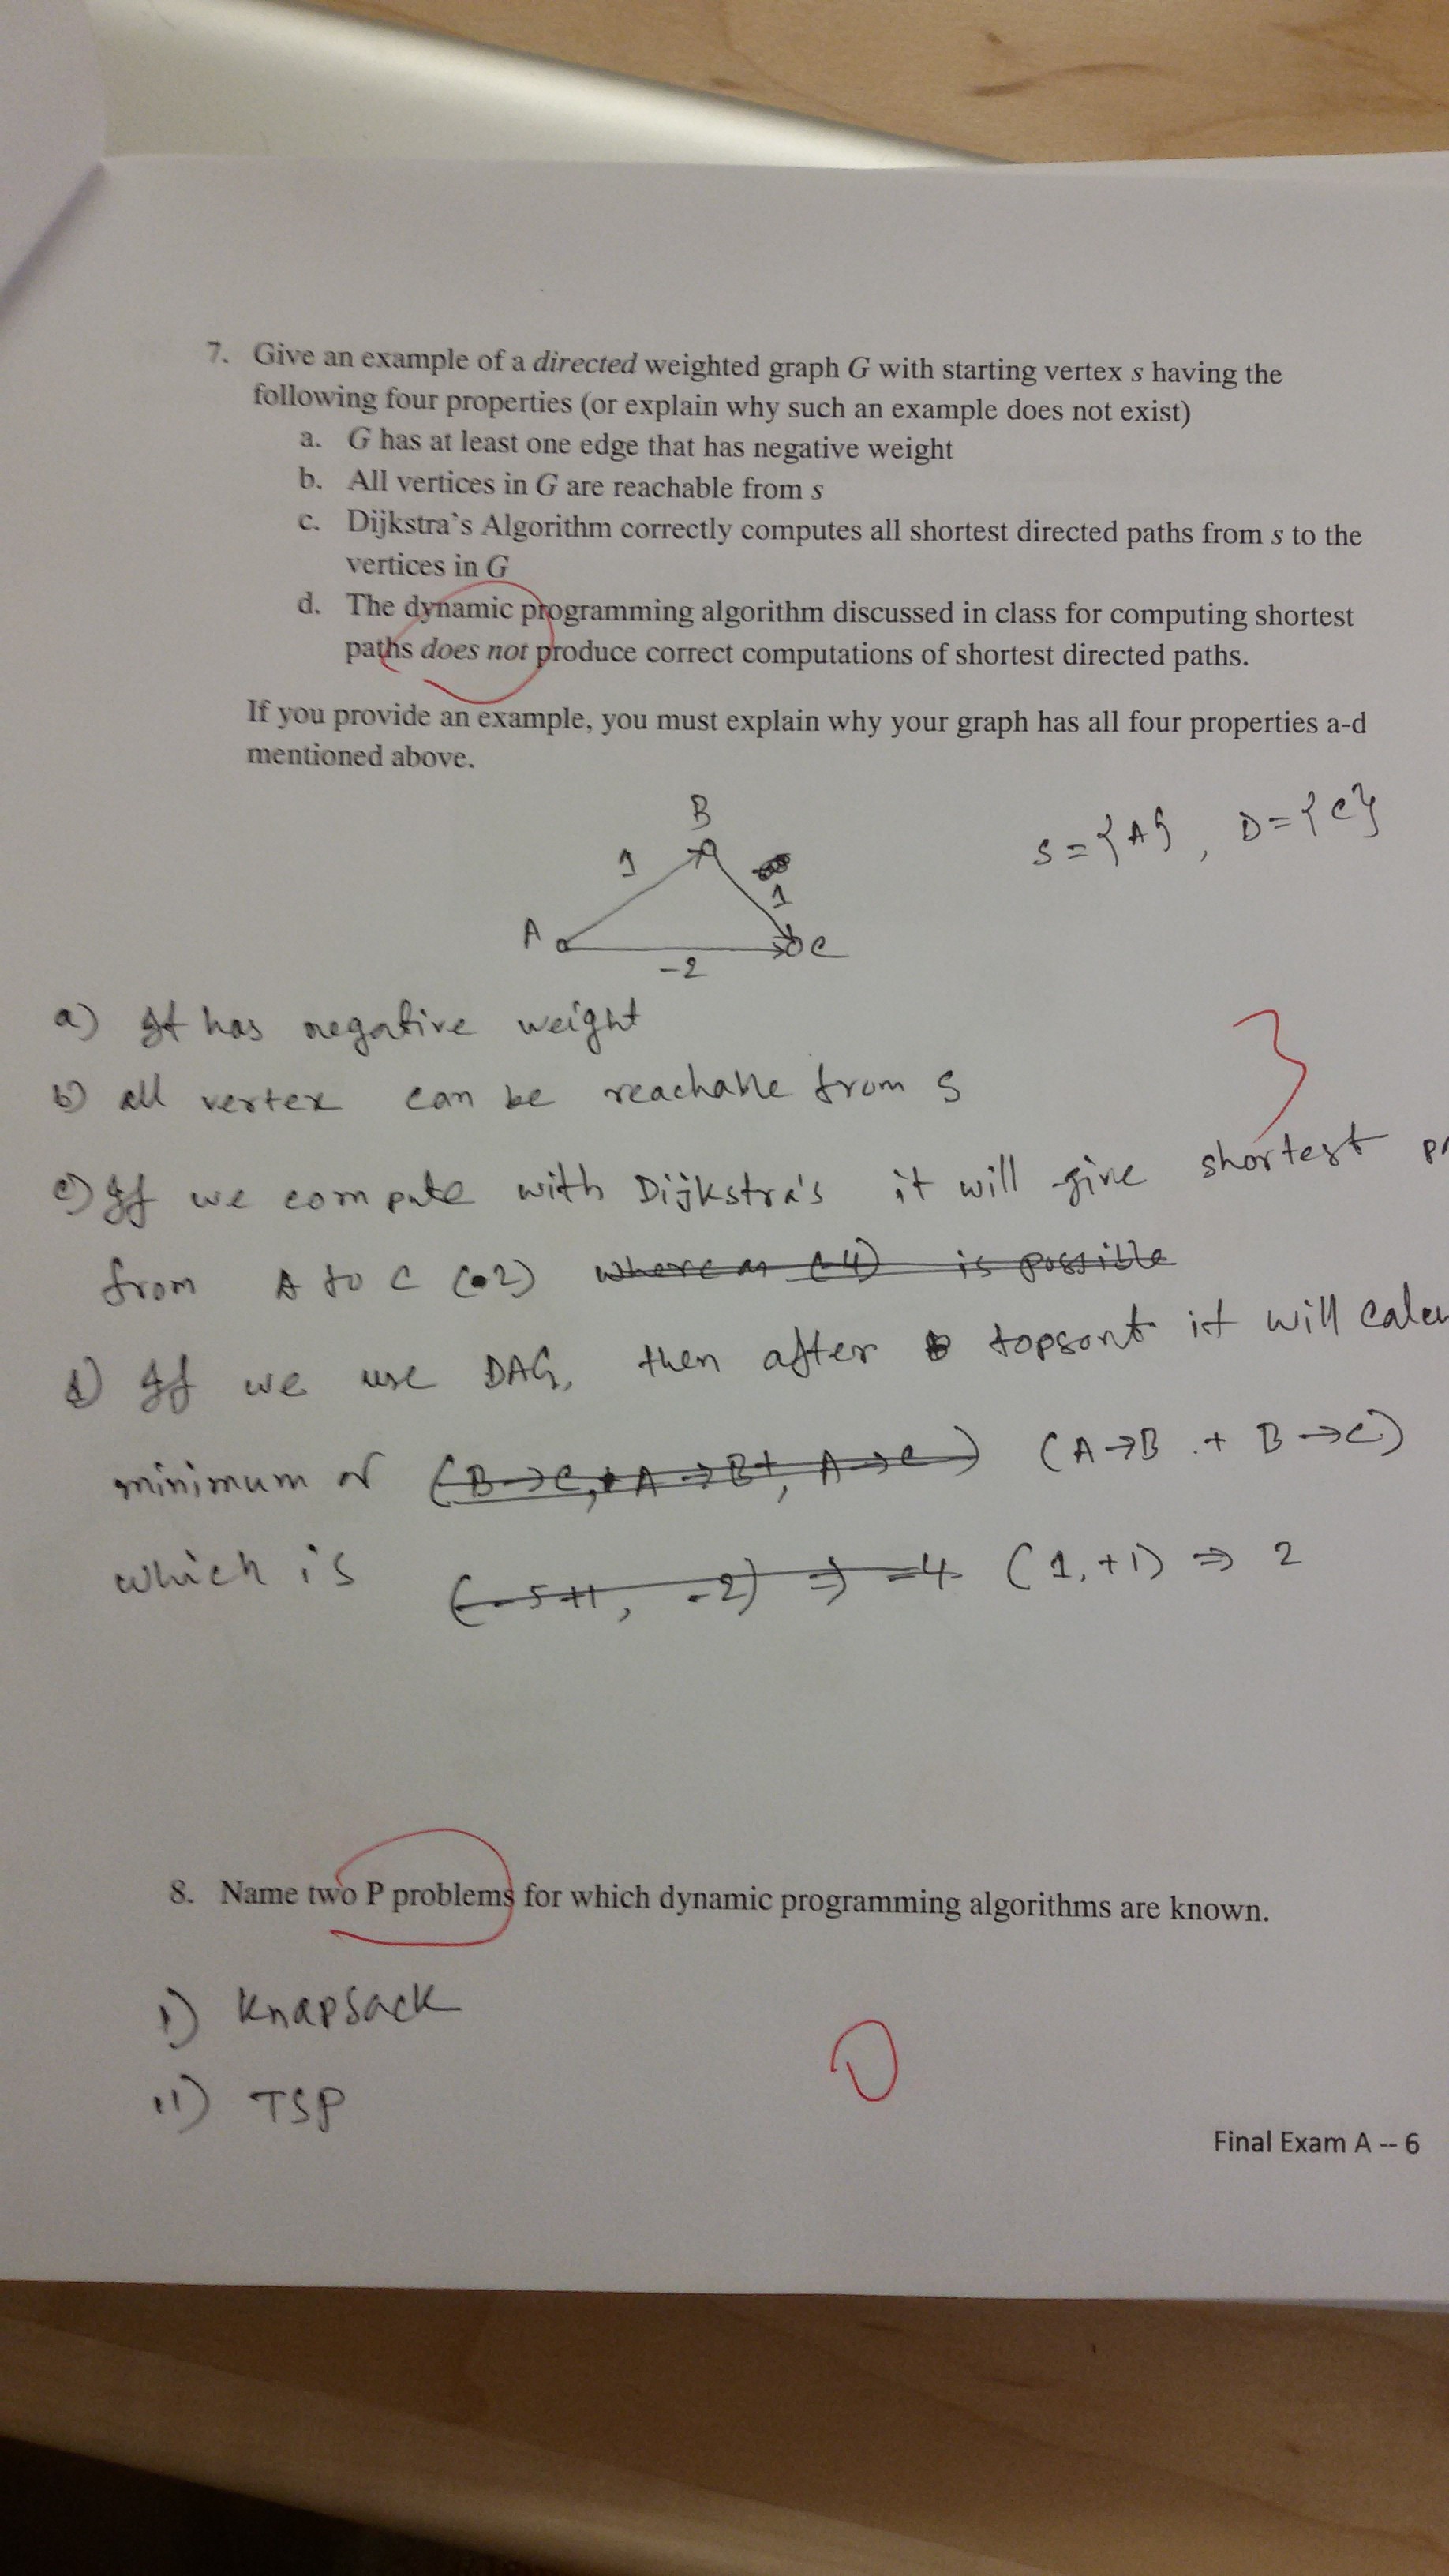 7. Give an example of a directed weighted graph G with starting vertex s having the
following four properties (or explain why such an example does not exist)
a. G has at least one edge that has negative weight
b. All vertices in G are reachable from s
c. Dijkstra's Algorithm correctly computes all shortest directed paths from s to the
vertices in G
d. The dynamic programming algorithm discussed in class for computing shortest
paths does not produce correct computations of shortest directed paths.
If you provide an example, you must explain why your graph has all four properties a-d
mentioned above.
B
S = {A}, D = {C}
1
1
A
C
-2
a) It has negative weight
3
b) all vertex can be reachable from S
c) If we compute with Dijkstra's it will give shortest
from A to C (2) where is possible
d) If we use DAG, then after topsort it will
minimum of (B→C, A→B+, A→C) (A→B + B→C)
which is (-5+1, -2) ⇒ -4 (1,+1) ⇒ 2
8. Name two P problems for which dynamic programming algorithms are known.
i) Knapsack
0
ii) TSP
Final Exam A -- 6